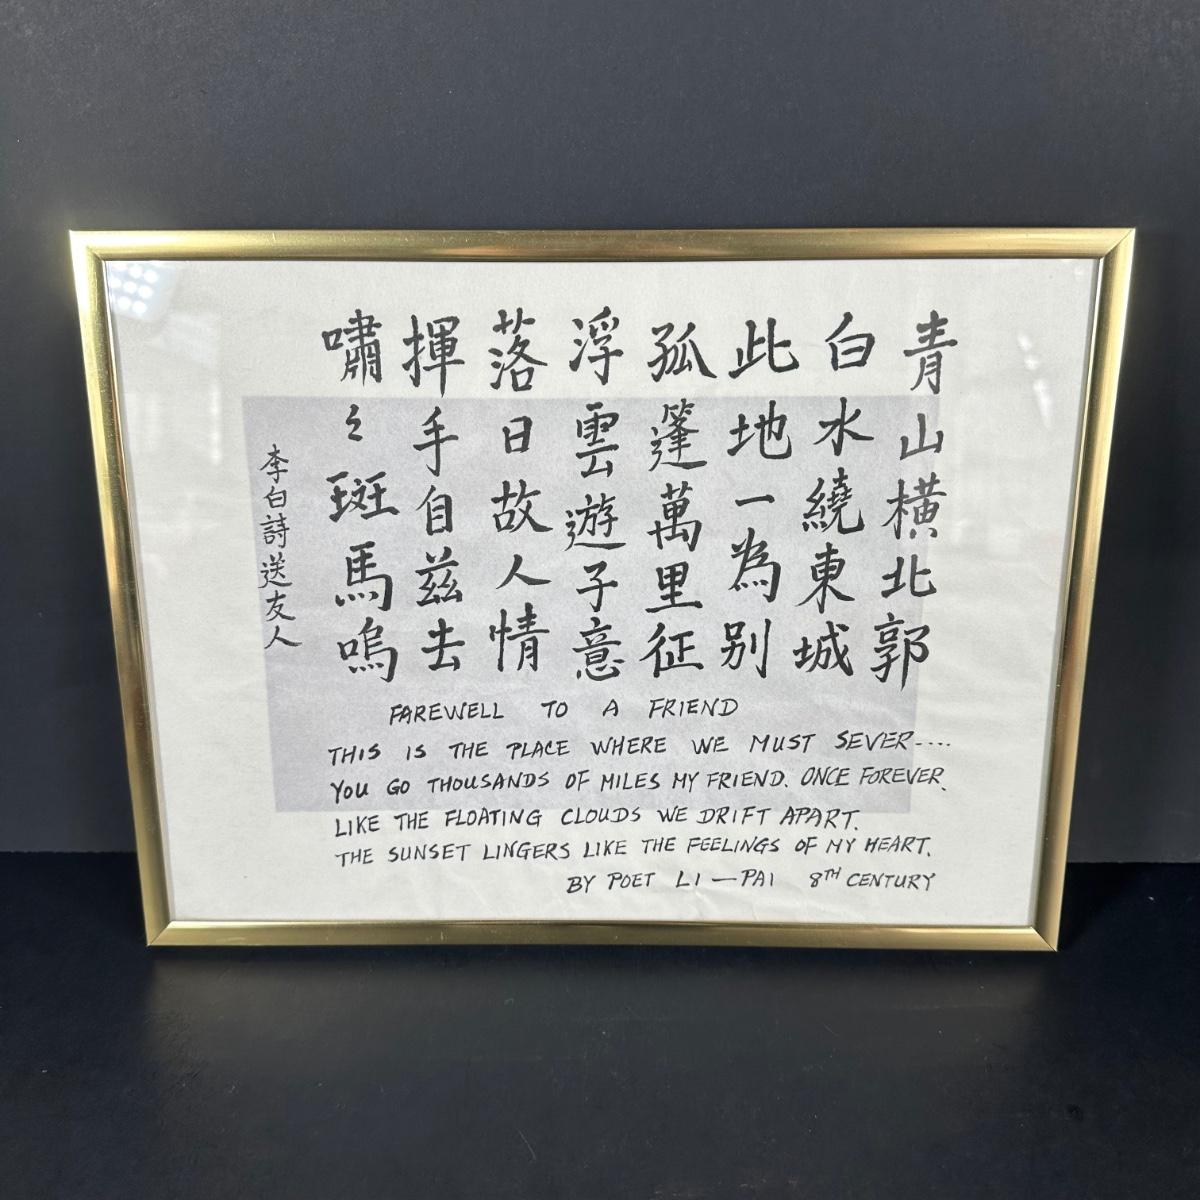 青山橫北郭
白水繞東城
此地一為別
孤篷萬里征
浮雲遊子意
落日故人情
揮手自茲去
嘯々斑馬嗚
李白詩送友人
FAREWELL TO A FRIEND
THIS IS THE PLACE WHERE WE MUST SEVER----
YOU GO THOUSANDS OF MILES MY FRIEND. ONCE FOREVER.
LIKE THE FLOATING CLOUDS WE DRIFT APART.
THE SUNSET LINGERS LIKE THE FEELINGS OF MY HEART.
BY POET LI—PAI 8TH CENTURY